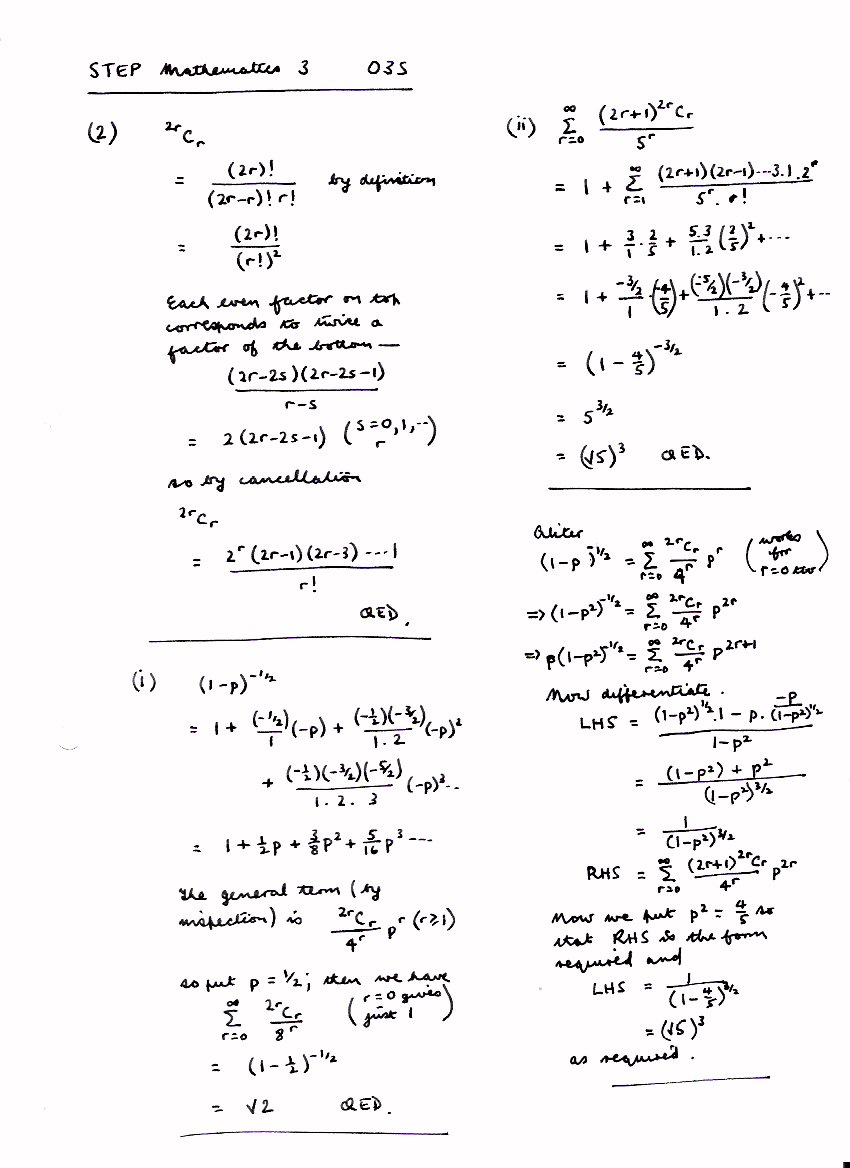 STEP Mathematics 3 03S
(2) ²ʳCᵣ
= (2r)! / (2r-r)! r! by definition
= (2r)! / (r!)²
Each even factor on top
corresponds to twice a
factor of the bottom —
(2r-2s)(2r-2s-1) / r-s
= 2(2r-2s-1) (s=0,1,-- r)
so by cancellation
²ʳCᵣ
= 2ʳ(2r-1)(2r-3)----1 / r!
QED.
(i) (1-p)^(-1/2)
= 1 + (-1/2)/1 (-p) + (-1/2)(-3/2)/1.2 (-p)²
+ (-1/2)(-3/2)(-5/2)/1.2.3 (-p)³..
= 1 + 1/2 p + 3/8 p² + 5/16 p³ ----
The general term (by
inspection) is ²ʳCᵣ/4ʳ pʳ (r≥1)
so put p = 1/2; then we have
∞ Σ r=0 ²ʳCᵣ/8ʳ (r=0 gives just 1)
= (1-1/2)^(-1/2)
= √2 QED.
(ii) ∞ Σ r=0 (2r+1)²ʳCᵣ / 5ʳ
= 1 + ∞ Σ r=1 (2r+1)(2r-1)---3.1.2ʳ / 5ʳ.r!
= 1 + 3/1 . 2/5 + 5.3/1.2 (2/5)² + ---
= 1 + (-3/2)/1 (-4/5) + (-5/2)(-3/2)/1.2 (-4/5)² + --
= (1 - 4/5)^(-3/2)
= 5^(3/2)
= (√5)³ QED.
Aliter
(1-p)^(-1/2) = ∞ Σ r=0 ²ʳCᵣ/4ʳ pʳ (works for r=0 too)
=> (1-p²)^(-1/2) = ∞ Σ r=0 ²ʳCᵣ/4ʳ p²ʳ
=> p(1-p²)^(-1/2) = ∞ Σ r=0 ²ʳCᵣ/4ʳ p^(2r+1)
Now differentiate.
LHS = (1-p²)^(1/2).1 - p. -p/(1-p²)^(1/2) / 1-p²
= (1-p²) + p² / (1-p²)^(3/2)
= 1 / (1-p²)^(3/2)
RHS = ∞ Σ r=0 (2r+1)²ʳCᵣ/4ʳ p²ʳ
Now we put p² = 4/5 so
that RHS is the form
required and
LHS = 1 / (1-4/5)^(3/2)
= (√5)³
as required.